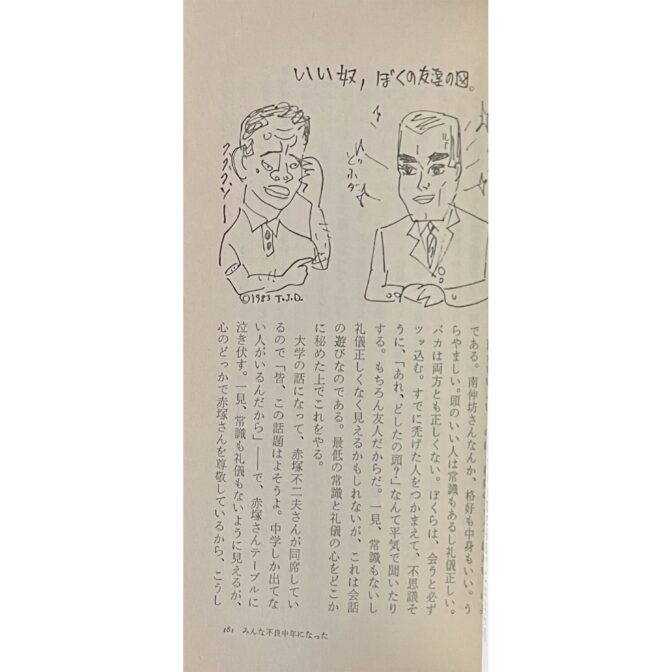 いい奴，ぼくの友達の図。
©1983 T.J.D.
である。南伸坊さんなんか、格好も中身もいい。う
らやましい。頭のいい人は常識もあるし礼儀正しい。
バカは両方とも正しくない。ぼくらは、会うと必ず
ツッ込む。すでに禿げた人をつかまえて、不思議そ
うに、「あれ、どしたの頭？」なんて平気で聞いたり
する。もちろん友人だからだ。一見、常識もないし
礼儀正しくなく見えるかもしれないが、これは会話
の遊びなのである。最低の常識と礼儀の心をどこか
に秘めた上でこれをやる。
大学の話になって、赤塚不二夫さんが同席してい
るので「皆、この話題はよそうよ。中学しか出てな
い人がいるんだから」――で、赤塚さんテーブルに
泣き伏す。一見、常識も礼儀もないように見えるが、
心のどっかで赤塚さんを尊敬しているから、こうし
181 みんな不良中年になった